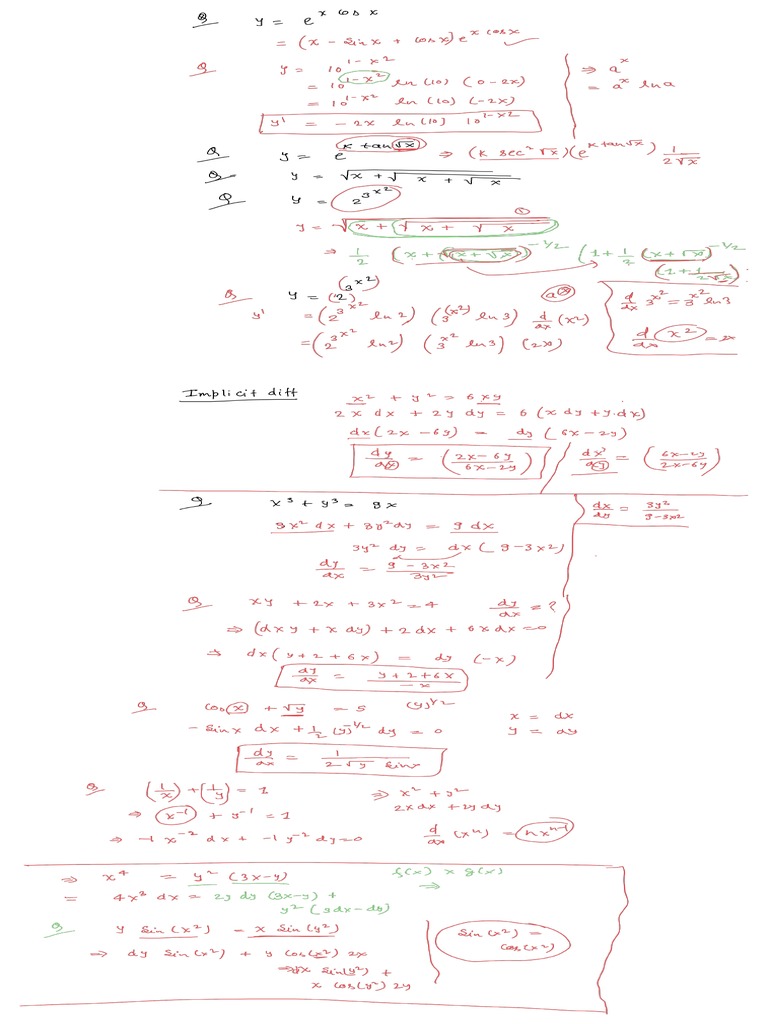 Q y = e^{x cos x}
= (x - sin x + cos x) e^{x cos x}
Q y = 10^{1-x^2} ⇒ a^x
= 10^{1-x^2} ln(10) (0-2x) = a^x ln a
= 10^{1-x^2} ln(10) (-2x)
y' = -2x ln(10) 10^{1-x^2}
Q y = e^{k tan √x} ⇒ (k sec^2 √x)(e^{k tan √x}) 1/(2√x)
Q y = √(x + √(x + √x))
Q y = 2^{3^{x^2}}
y = √(x + √(x + √x))
⇒ 1/2 (x + √(x + √x))^{-1/2} (1 + 1/2 (x + √x)^{-1/2}
(1 + 1/(2√x))
Q y = (2)^{(3^{x^2})} d/dx 3^{x^2} = 3^{x^2} ln 3
y' = (2^{3^{x^2}} ln 2) (3^{(x^2)} ln 3) d/dx (x^2)
= (2^{3^{x^2}} ln 2) (3^{x^2} ln 3) (2x) d/dx (x^2) = 2x
Implicit diff x^2 + y^2 = 6xy
2x dx + 2y dy = 6 (x dy + y.dx)
dx (2x - 6y) = dy (6x - 2y)
dy/dx = (2x-6y / 6x-2y) dx/dy = (6x-2y / 2x-6y)
Q x^3 + y^3 = 9x dx/dy = 3y^2 / 9-3x^2
3x^2 dx + 3y^2 dy = 9 dx
3y^2 dy = dx (9 - 3x^2)
dy/dx = 9 - 3x^2 / 3y^2
Q xy + 2x + 3x^2 = 4 dy/dx = ?
⇒ (dx y + x dy) + 2 dx + 6x dx = 0
⇒ dx (y + 2 + 6x) = dy (-x)
dy/dx = y + 2 + 6x / -x
Q cos(x) + √y = 5 (y)^{1/2}
- sin x dx + 1/2 (y)^{-1/2} dy = 0 x = dx
y = dy
dy/dx = 1 / 2√y sin x
Q (1/x) + (1/y) = 1 ⇒ x^2 + y^2
⇒ x^{-1} + y^{-1} = 1 2x dx + 2y dy
⇒ -1 x^{-2} dx + -1 y^{-2} dy = 0 d/dx (x^n) = nx^{n-1}
⇒ x^4 = y^2 (3x-y) f(x) x g(x)
= 4x^3 dx = 2y dy (3x-y) + ⇒
y^2 (3dx - dy)
Q y sin(x^2) = x sin(y^2) sin(x^2) =
cos(x^2)
⇒ dy sin(x^2) + y cos(x^2) 2x
⇒ dx sin(y^2) +
x cos(y^2) 2y